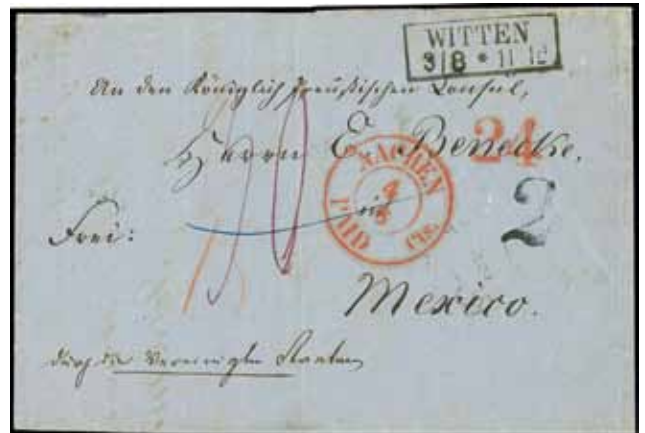 WITTEN
3|8 * 11 12
An den Königlich Preußischen Consul,
Herrn E. Benecke.
24
AACHEN
4
8
PAID Cts.
2
Frei:
Mexico.
durch die Vereinigten Staaten